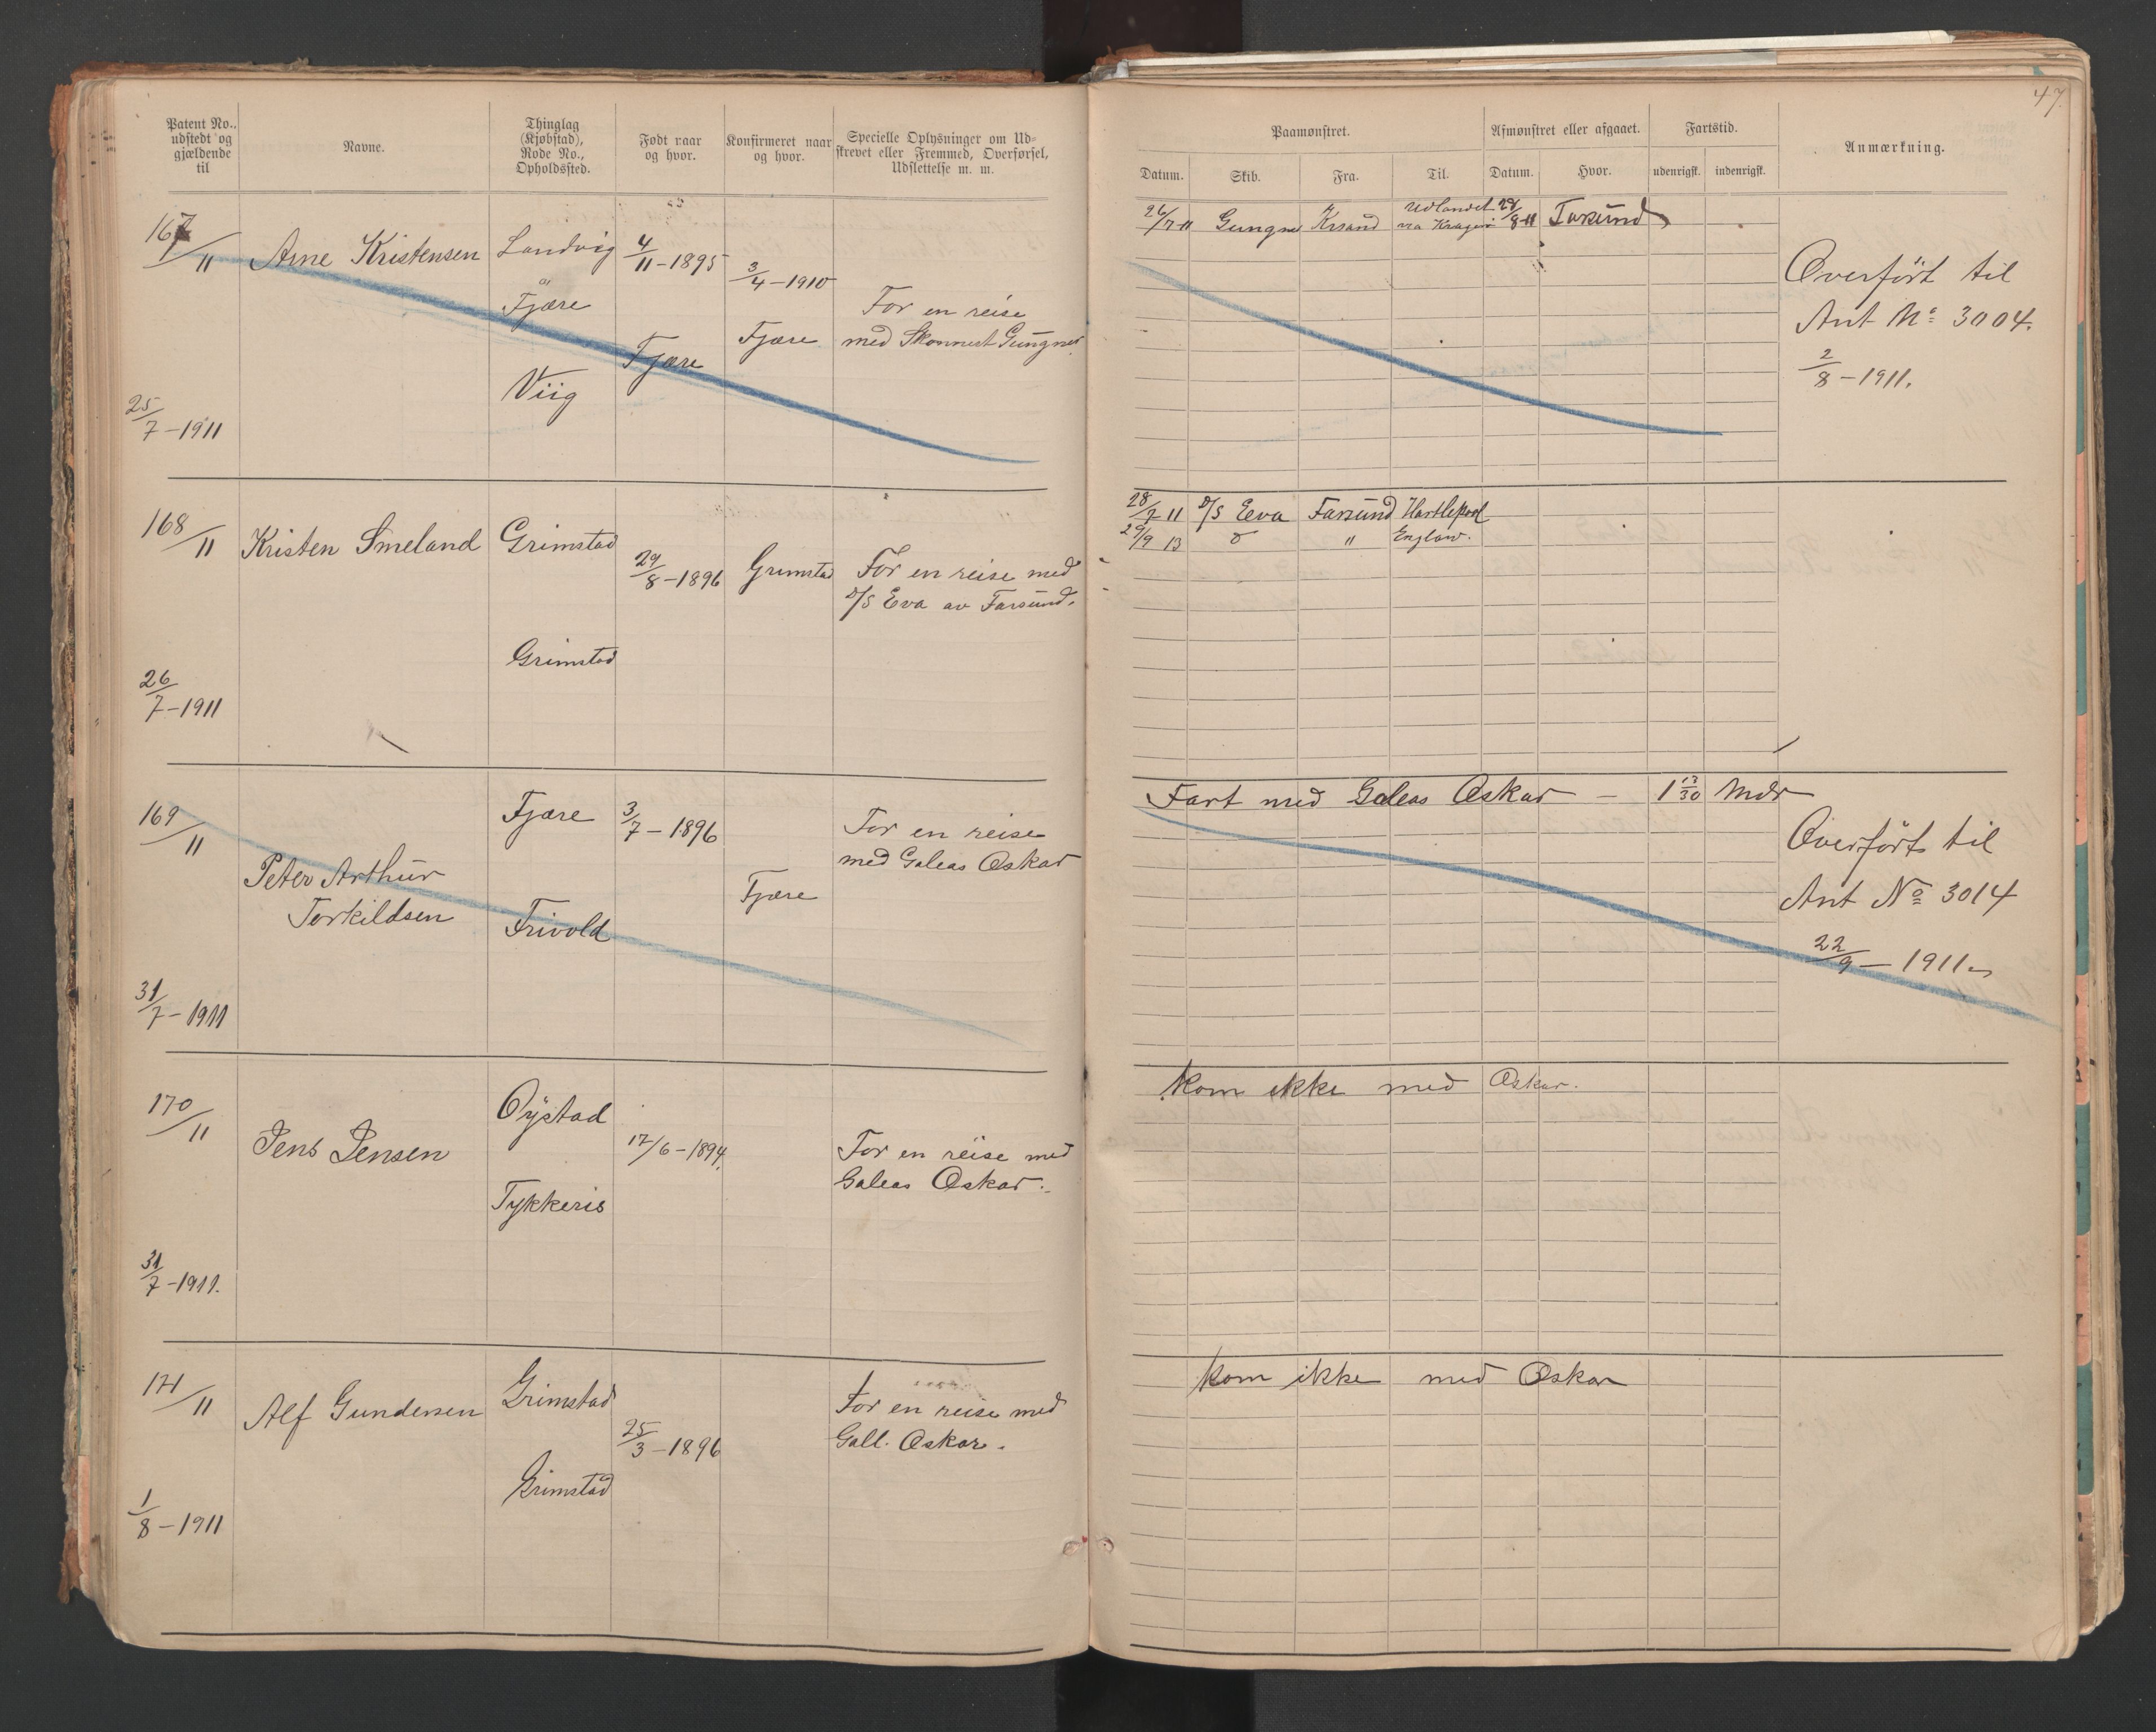 47.
Patent No., udstedt og gjældende til
Navne.
Thinglag (Kjøbstad), Rode No., Opholdssted.
Født naar og hvor.
Konfirmeret naar og hvor.
Specielle Oplysninger om Udskrevet eller Fremmed, Overførsel, Udslettelse m. m.
Paamønstret.
Afmønstret eller afgaaet.
Fartstid.
Anmærkning.
Datum.
Skib.
Fra.
Til.
Datum.
Hvor.
udenrigsk.
indenrigsk.
167/11
Arne Kristensen
Landvig
Fjære
Viig
4/11-1895
Fjære
3/4-1910
Fjære
For en reise
med Skonnert Gungner
25/7-1911
26/7-11 Gungner Krsand Udlandet
via Kragerø
Farsund
Overført til
Ant No 3004.
2/8-1911.
168/11
Kristen Smeland
Grimstad
Grimstad
29/8-1896
Grimstad
For en reise med
D/S Eva av Farsund.
26/7-1911
28/7 11 D/S Eva Farsund Hartlepool
29/9 13 " Englan.
169/11
Peter Arthur
Terkildsen
Fjære
Frivold
3/7-1896
Fjære
For en reise
med Galeas Oskar
31/7-1911
Fart med Galeas Oskar – 1 13/30 Mdr
Overført til
Ant No 3014
22/9-1911
170/11
Jens Jensen
Oÿstad
Tykkeris
17/6-1894.
For en reise med
Galeas Oskar.
31/7-1911.
Kom ikke med Oskar.
171/11
Alf Gundersen
Grimstad
Grimstad
25/3-1896
For en reise med
Gall. Oskar.
1/8-1911
Kom ikke med Oskar